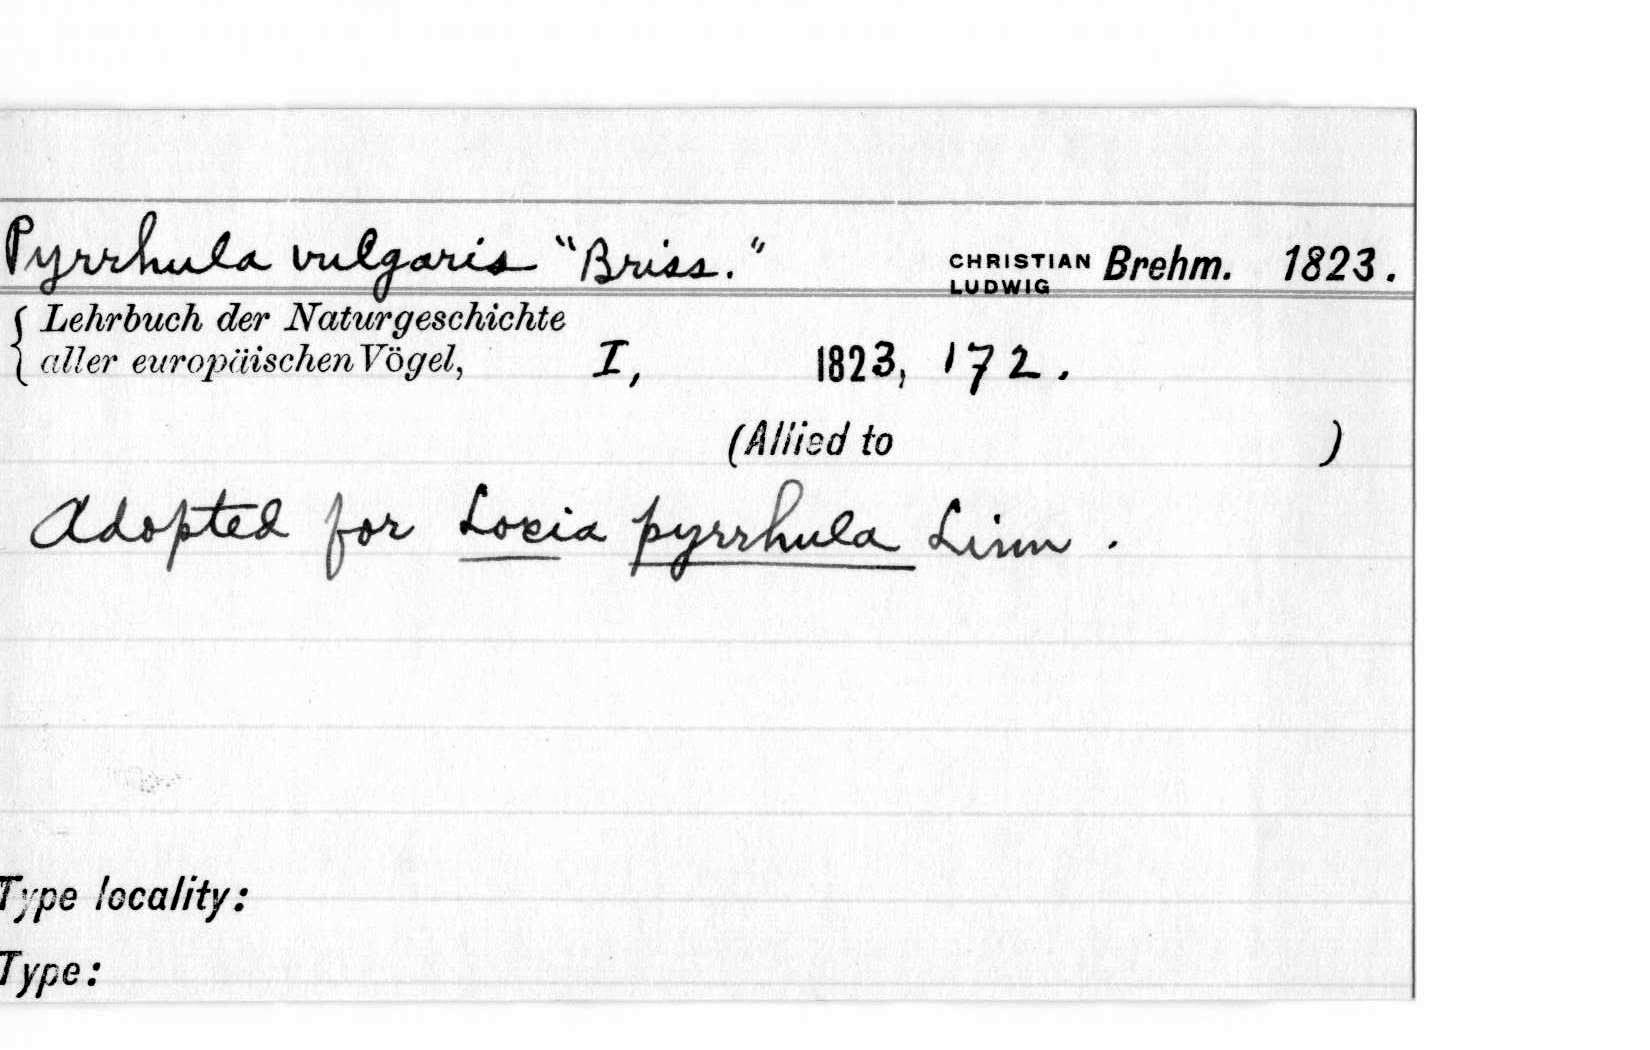 Pyrrhula vulgaris "Briss." CHRISTIAN LUDWIG Brehm. 1823.
Lehrbuch der Naturgeschichte
aller europäischen Vögel, I, 1823, 172.
(Allied to )
Adopted for Loxia pyrrhula Linn.
Type locality:
Type: